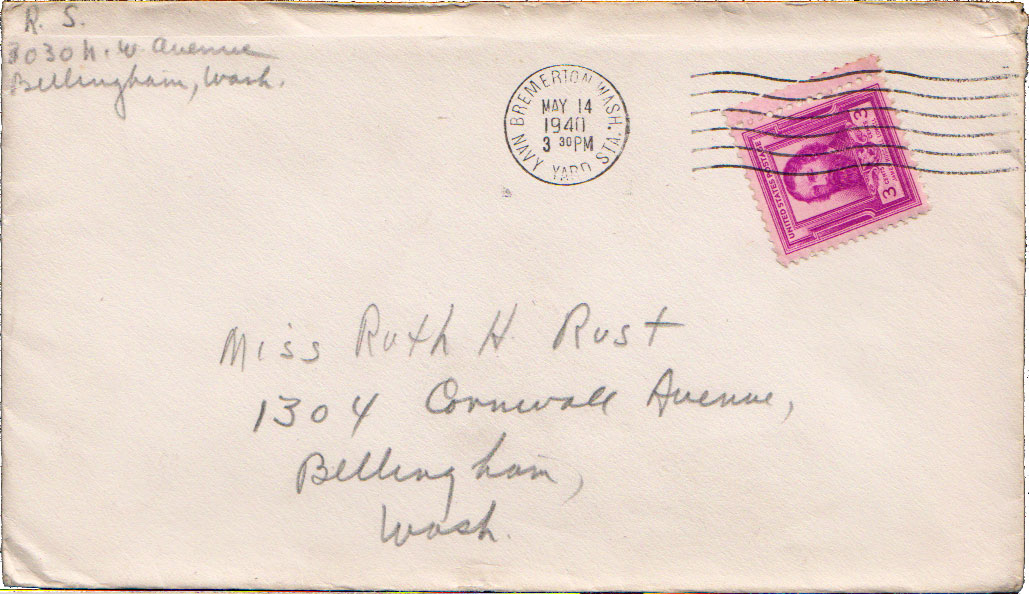 R. S.
3030 N. W. Avenue
Bellingham, Wash.
BREMERTON, WASH.
NAVY YARD STA.
MAY 14
1940
3 30 PM
UNITED STATES POSTAGE
3 CENTS 3
Miss Ruth H. Rust
1304 Cornwall Avenue,
Bellingham,
Wash.